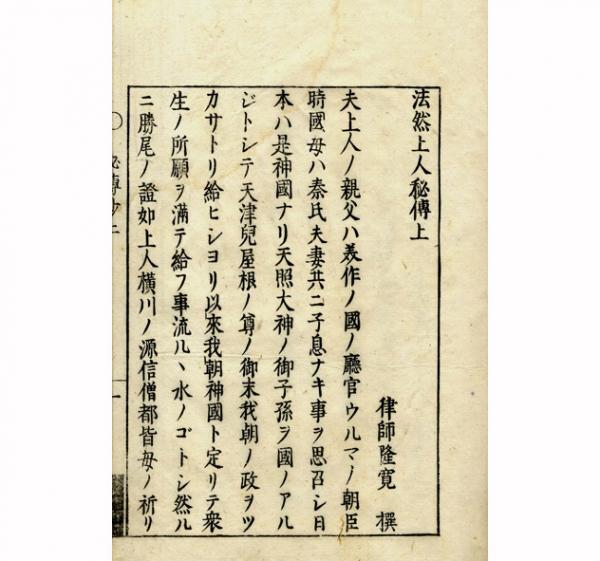 法然上人秘傳上
律師隆寛　撰
夫上人ノ親父ハ美作ノ國ノ廳官ウルマノ朝臣
時國母ハ秦氏夫妻共ニ子息ナキ事ヲ思召シ日
本ハ是神國ナリ天照大神ノ御子孫ヲ國ノアル
ジトシテ天津兒屋根ノ尊ノ御末我朝ノ政ヲツ
カサトリ給ヒシヨリ以來我朝神國ト定リテ衆
生ノ所願ヲ滿テ給フ事流ルヽ水ノゴトシ然ル
ニ勝尾ノ證如上人横川ノ源信僧都皆母ノ祈リ